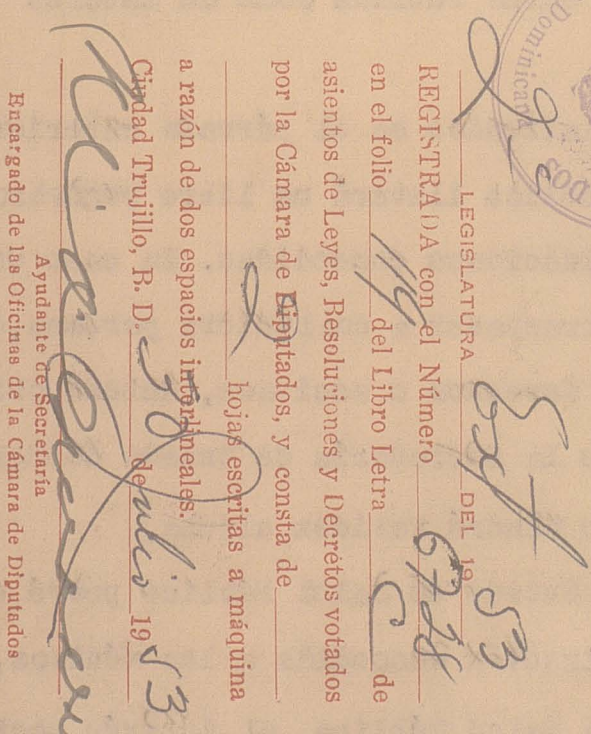 Dominicana
DOS
2a LEGISLATURA Ext DEL 1953
REGISTRADA con el Número 6728
en el folio 119 del Libro Letra C de
asientos de Leyes, Resoluciones y Decretos votados
por la Cámara de Diputados, y consta de
2 hojas escritas a máquina
a razón de dos espacios interlineales.
Ciudad Trujillo, R. D. 30 de Julio 1953
Ayudante de Secretaría
Encargado de las Oficinas de la Cámara de Diputados